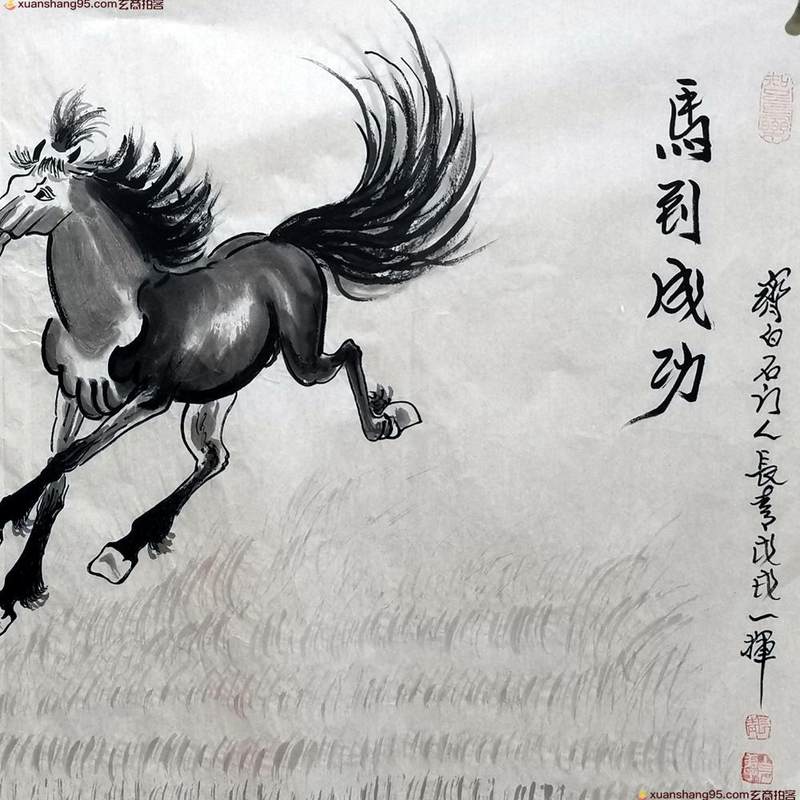 xuanshang95.com玄商拍客
馬到成功
齊白石門人長青戊戌一揮
xuanshang95.com玄商拍客